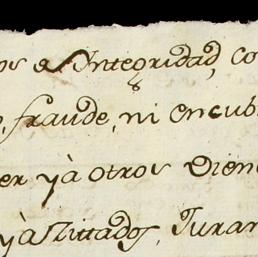 os e Integridad, co
fraude, ni encub
er yà otros Dien
yàzittados, Juran